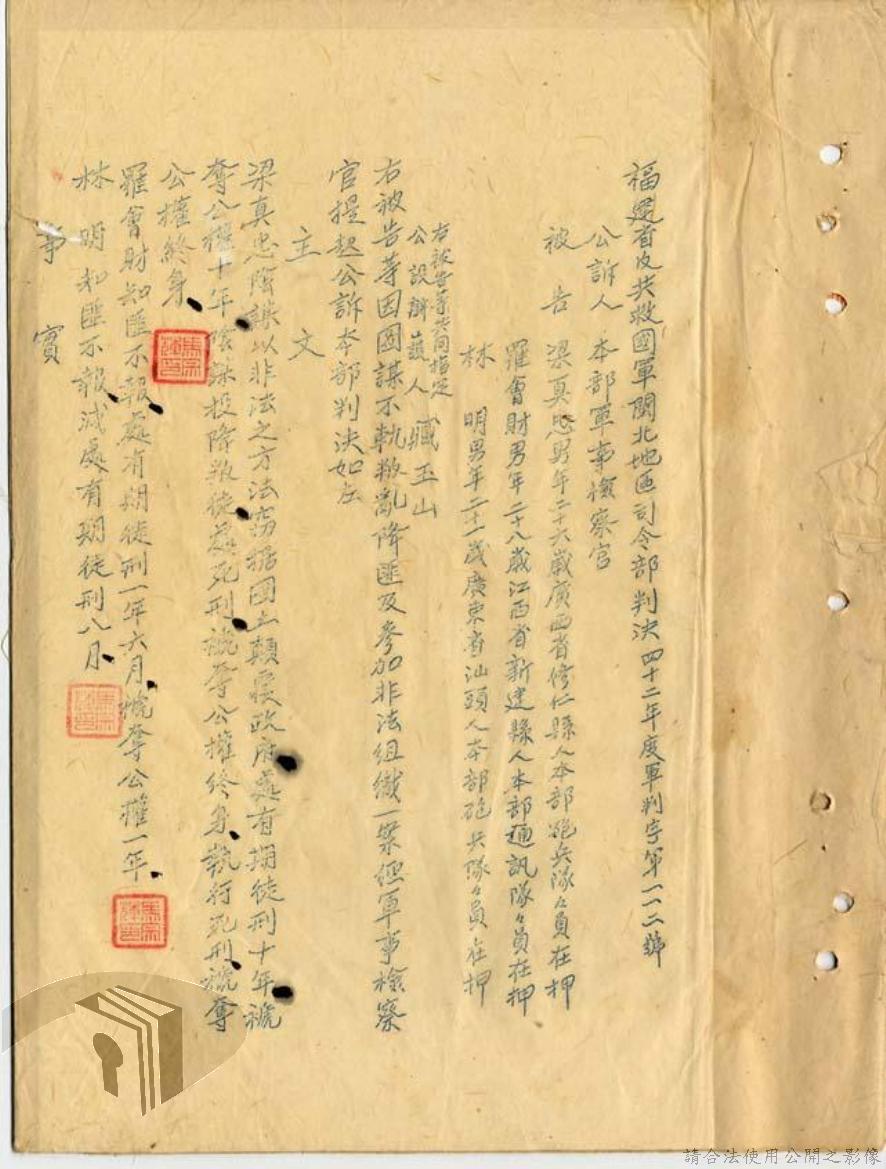 福建省反共救國軍閩北地區司令部判決四十二年度軍判字第一一二號
公訴人本部軍事檢察官
被告梁真忠男年二十六歲廣西省修仁縣人本部砲兵隊隊員在押
羅會財男年二十八歲江西省新建縣人本部通訊隊隊員在押
林明男年二十一歲廣東省汕頭人本部砲兵隊隊員在押
右被告等共同指定
公設辯護人臧玉山
右被告等因圖謀不軌叛亂降匪及參加非法組織一案經軍事檢察
官提起公訴本部判決如左
主文
梁真忠陰謀以非法之方法竊據國土顛覆政府處有期徒刑十年褫
奪公權十年陰謀投降叛徒處死刑褫奪公權終身執行死刑褫奪
公權終身
羅會財知匪不報處有期徒刑一年六月褫奪公權一年
林明知匪不報減處有期徒刑八月
事實
請合法使用公開之影像